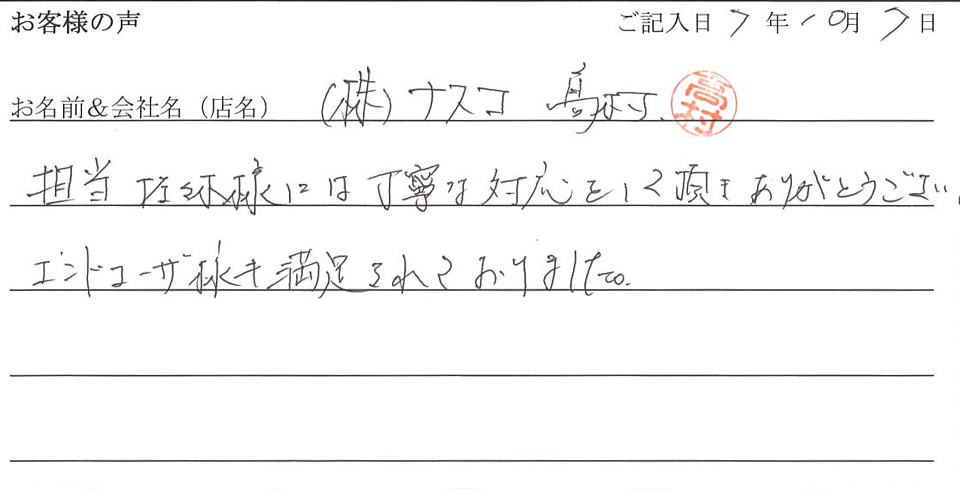 お客様の声 ご記入日 7年10月7日
お名前&会社名(店名) (株)ナスコ 髙村 髙村
担当 佐々木様には丁寧な対応をして頂きありがとうござい
エンドユーザ様も満足されておりました。